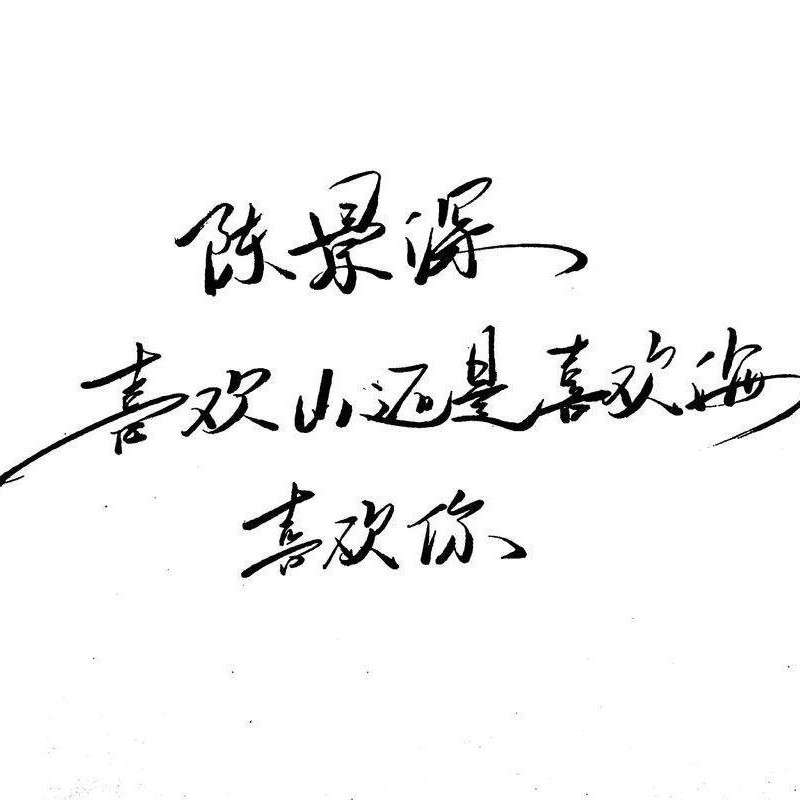 陈景深
喜欢山还是喜欢海
喜欢你